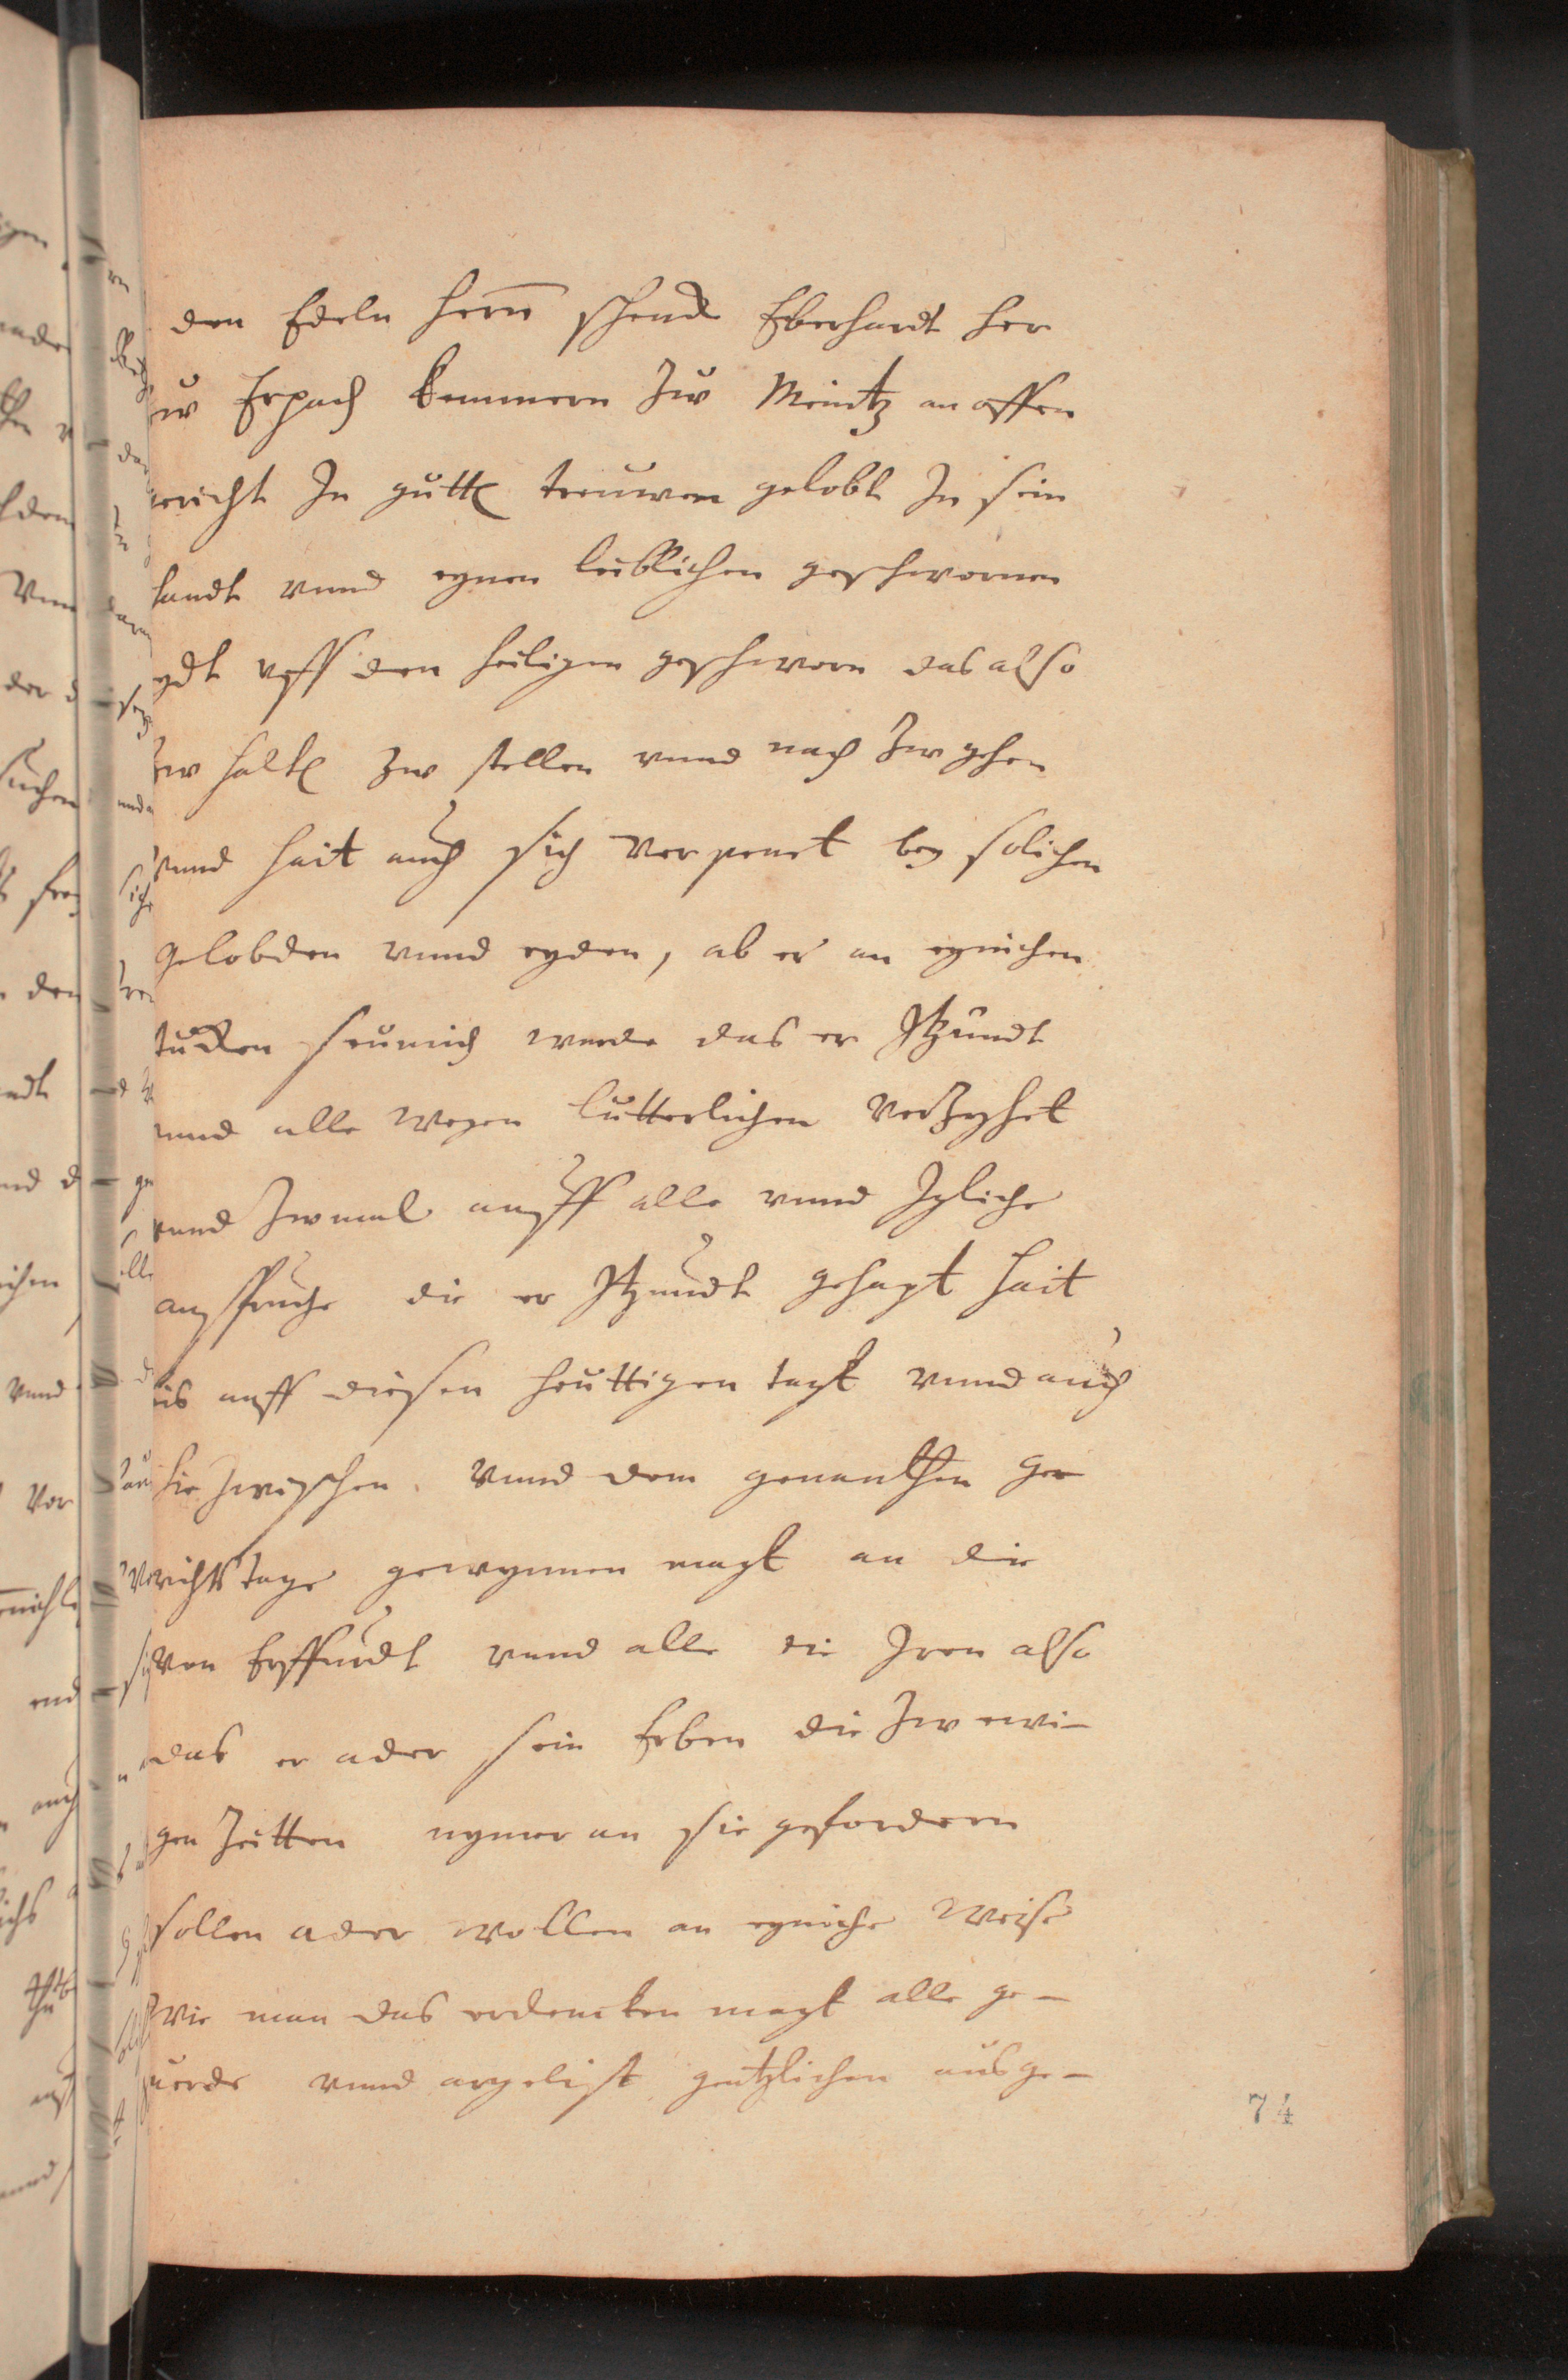 den Edeln hern̄ schenck Eberhardt her
zw Erpach kemmern Zw Meintz an offen
gericht In gutten treuwen gelobt In sein
handt vnnd eynen leiblichen geschwornen
eydt vff den heiligen geschworn das also
Zw halten zw stellen vnnd nach Zw gehen
vnnd hait auch sich verpenet bey solichen
gelobden vnnd eyden, ab er an eynichen
stucken seumich werde das er Itzundt
vnnd alle wegen lutterlichen verZyhet
vnnd Zwmal auff alle vnnd Igliche
anspruche die er Itzundt gehapt hait
bis auff diesen heuttigen tagk vnnd auch
hie Zwischen vnnd dem genanthen ge
richtstage gewynnen magk an die
von Erffurdt vnnd alle die Iren also
das er ader sein Erben die Zw ewi-
gen Zeitten nymer an sie gefordern
sollen ader wollen an eyniche Weise
wie man das erdencken magk alle ge-
uerde vnnd argelist gentzlichen ausge-
74